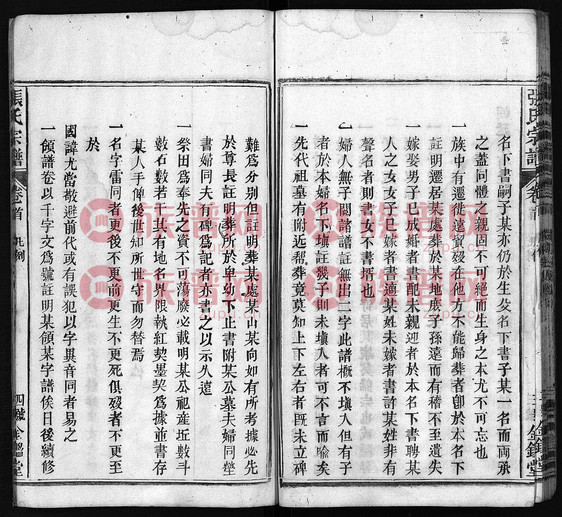 張氏宗譜
卷首
名下書嗣子某亦仍於生父名下書子某一名而兩承
之蓋同體之親固不可絕而生身之本尤不可忘也
一族中有遷徙遠賓殁在他方不能歸葬者卽於本名下
註明遷居某處葬於某地庶子孫遠而有稽不至遺失
一嫁娶男子已成婚者書配未親迎者於本名下書聘某
人之女女子已嫁者書適某姓未嫁者書許某姓非有
聲名者則書女不書揹也
一婦人無子閱諸譜註無出二字此譜概不填入但有子
者於本婦名下填註幾子如未填入者可不言而喻矣
一先代祖墓有附近帮葬竟莫知上下左右者旣未立碑
三
金鑑堂
難爲分别但註明葬某處某山某向如有所考據必先
於尊長註明葬所於卑幼下止書附某公墓夫婦同塋
書婦同夫有碑爲記者亦書之以示久遠
一祭田爲奉先之資不可蕩廢必載明某公祀産坵數斗
數石數若干其有地名界限執紅契墨契爲據並書存
某人手俾後世知所世守而勿替焉
一名字雷同者更後不更前更生不更死俱殁者不更至
於
國諱尤當敬避前代或有誤犯以字異音同者易之
一領譜卷以千字文爲號註明某領某字譜俟日後續修
張氏宗譜
卷首
凡例
四
金鑑堂
族譜网
族譜网
族譜网
族譜网